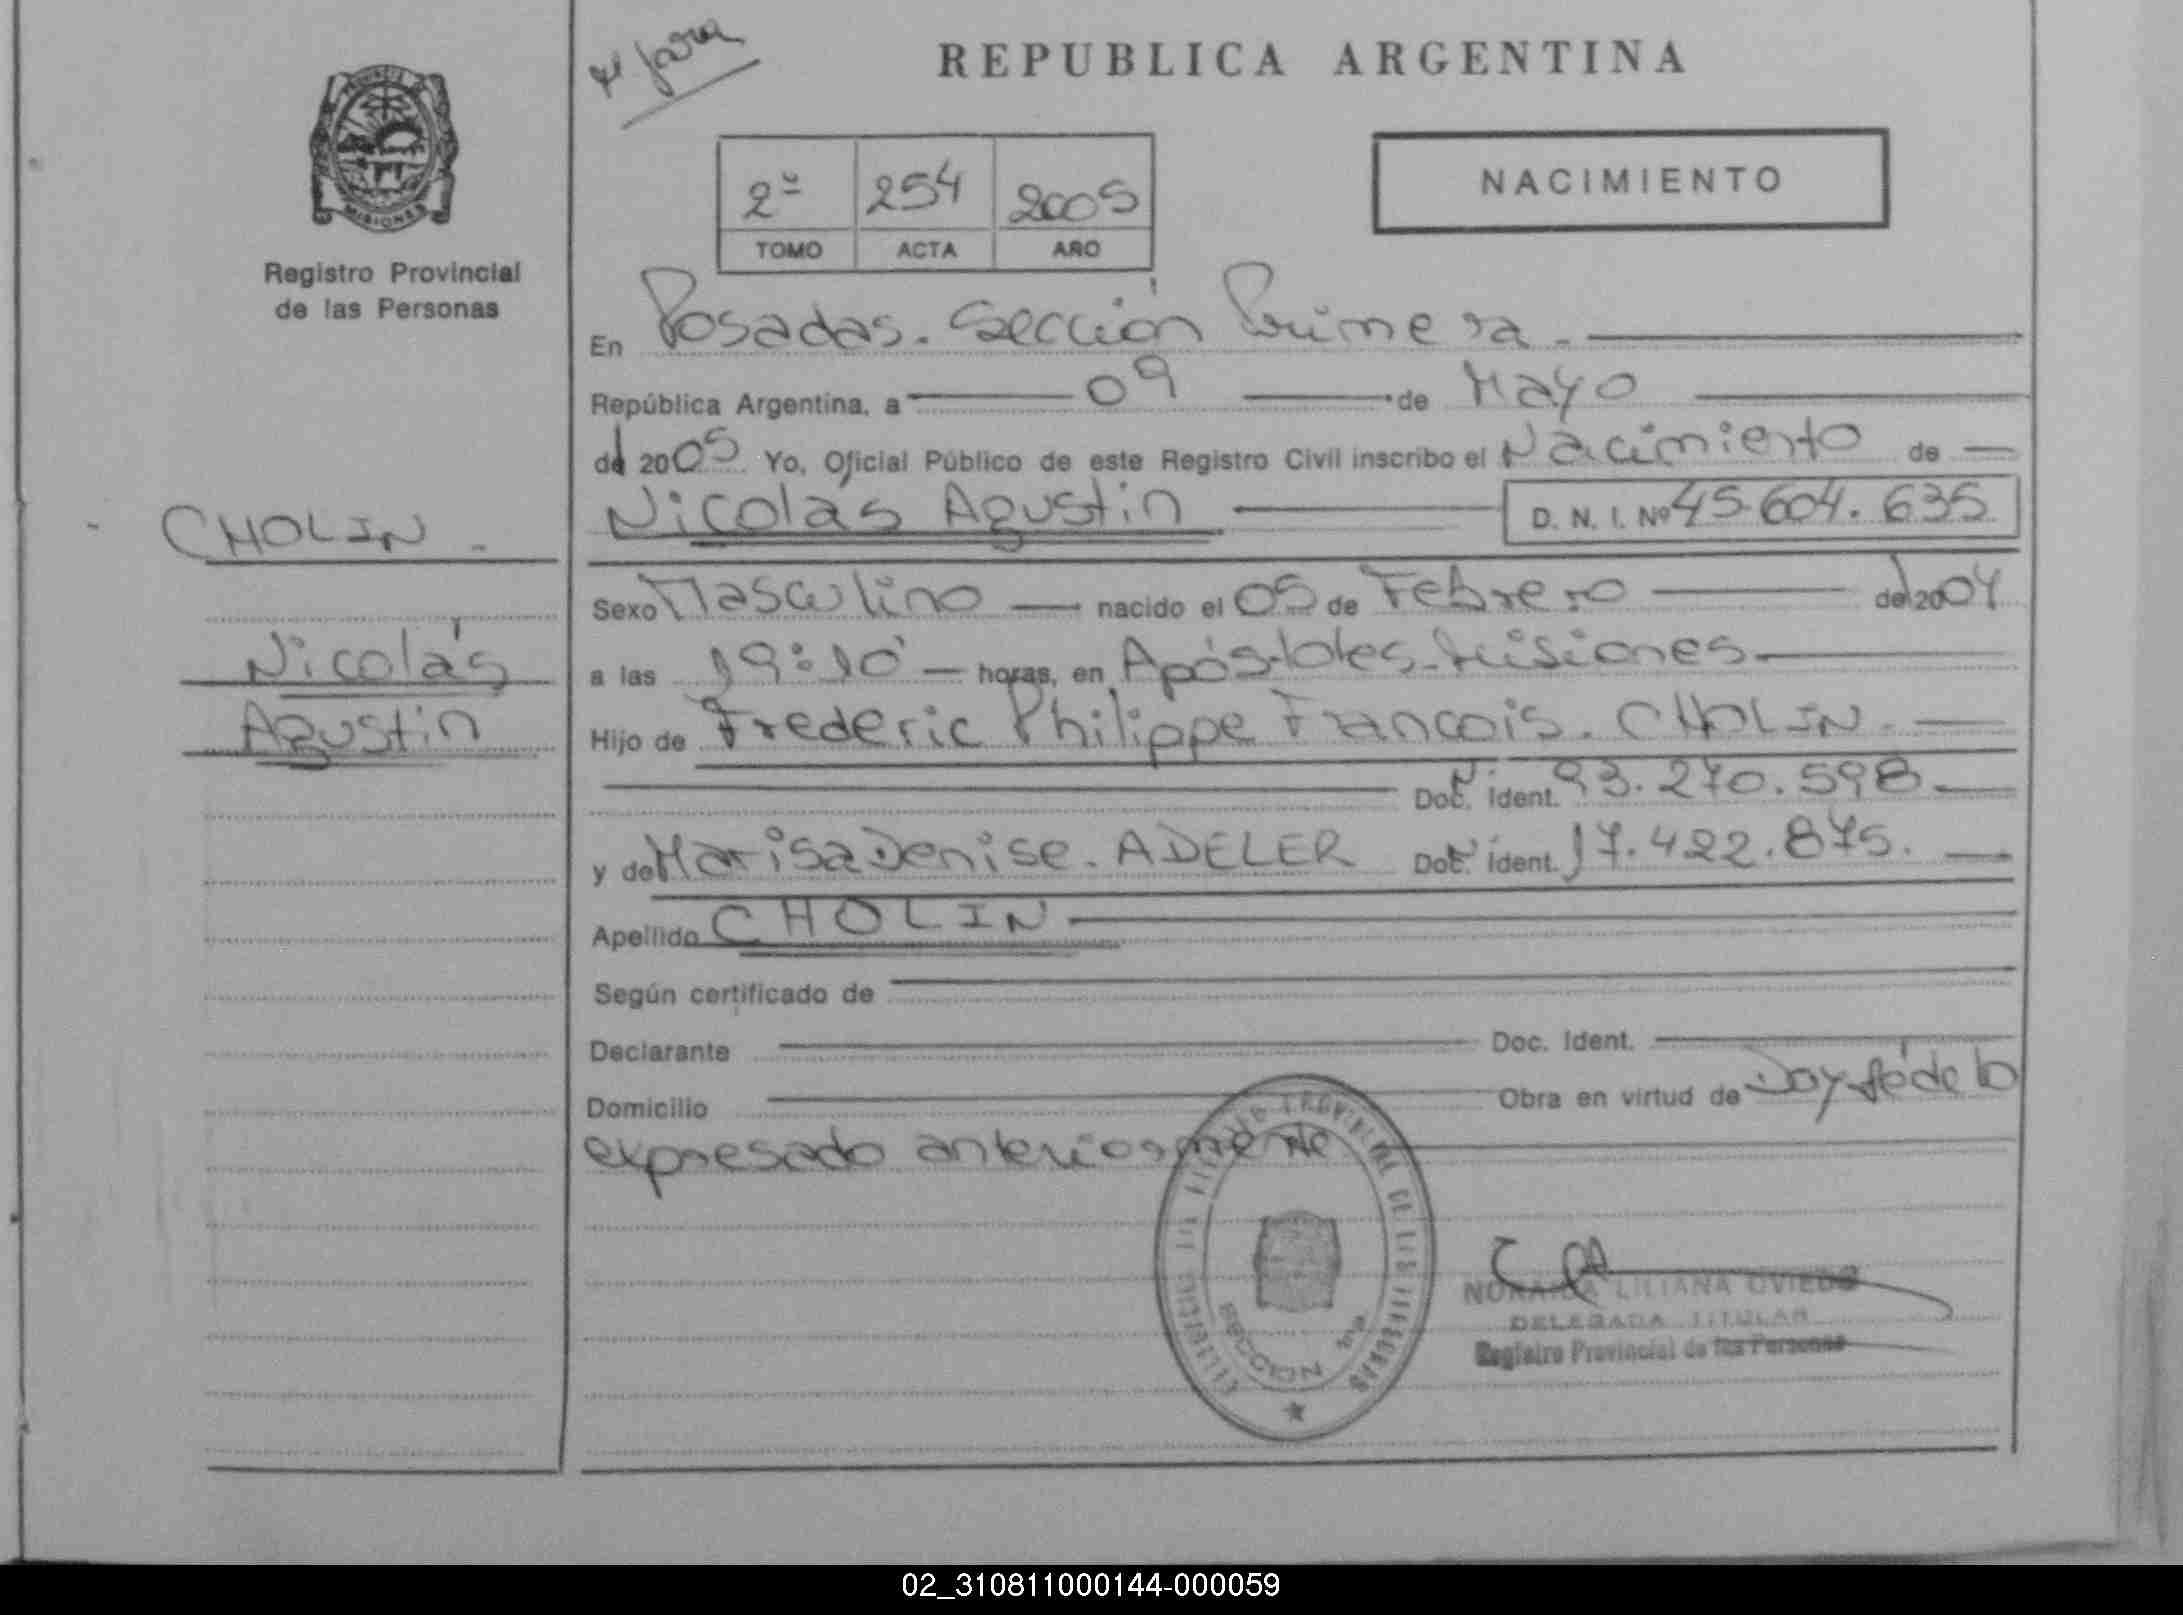 REPUBLICA ARGENTINA
MISIONES
Registro Provincial
de las Personas
2º 254 2005
TOMO ACTA AÑO
NACIMIENTO
En Posadas. Sección Primera.
República Argentina, a 09 de Mayo
de 2005 Yo, Oficial Público de este Registro Civil inscribo el Nacimiento de
CHOLIN
Nicolás Agustin
D. N. I. Nº 45.604.635
Sexo Masculino nacido el 05 de Febrero de 2004
Nicolás
a las 19:10' horas, en Apóstoles. Misiones
Agustin
Hijo de Frederic Philippe Francois. CHOLIN.
Doc. Ident. 93.270.598
y de Marisa Denise. ADELER Doc. Ident. 17.422.875.
Apellido CHOLIN
Según certificado de
Declarante Doc. Ident.
Domicilio Obra en virtud de Doy fé de lo
expresado anteriormente
PROVINCIAL DE LAS PERSONAS
SECCION 1ra
NORAIDA LILIANA OVIEDO
DELEGADA TITULAR
Registro Provincial de las Personas
02_310811000144-000059